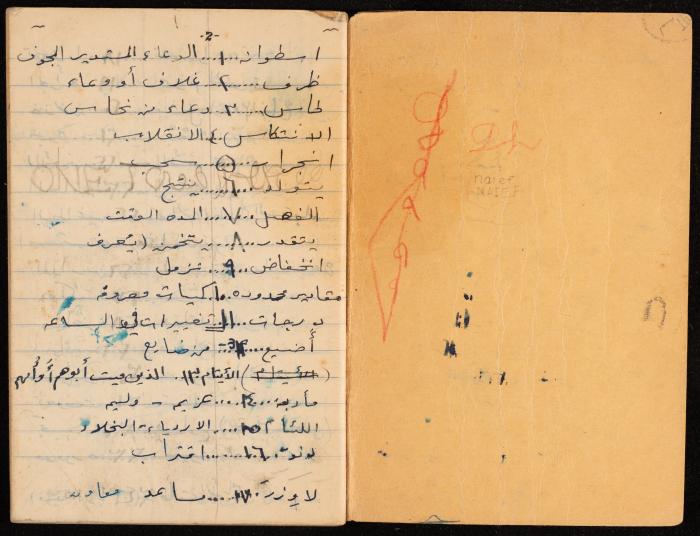 -2-
اسطوانه ...١... الدعاء المستدير المجوف
ظرف ...٢... غلاف أو وعاء
نحاس ...٣... وعاء من نحاس
الانتكاس ٤. الانقلاب
انجرار ...٥... سحب
يتولد ...٦... ينتج
الفصل ...٧... المده الوقت
يتقدر ...٨... يتخمن (يُعرف
انخفاض ...٩... نزول
مقادير محدوده ١٠. كميات معروفه
درجات ...١١... تغييرات في الساعه
أضيع ... من ضايع
الأيتام ١٣. الذين ميت أبوهم أو أمهم
مأدبه ...١٤... عزيم - وليم
اللئام ١٥... الاردياء - البخلاء
لدنو. ١٦... اقتراب
لاوزر. ١٧... ساعد معاون
naief
NAIEF